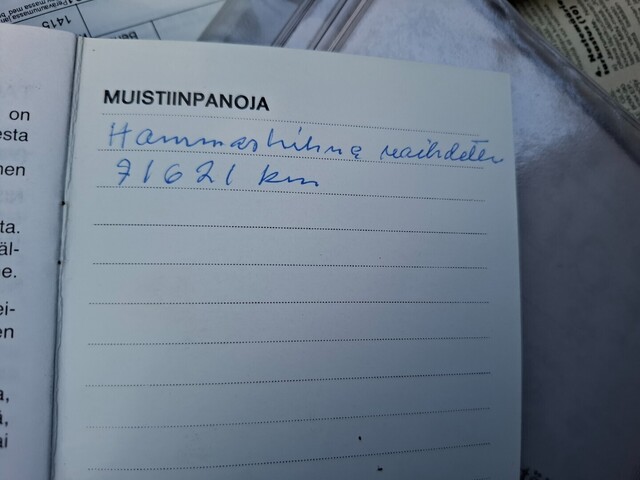 1415
MUISTIINPANOJA
Hammashihna vaihdettu
71621 km
on
esta
nen
ta.
äl-
e.
ei-
en
a,
ä,
ai